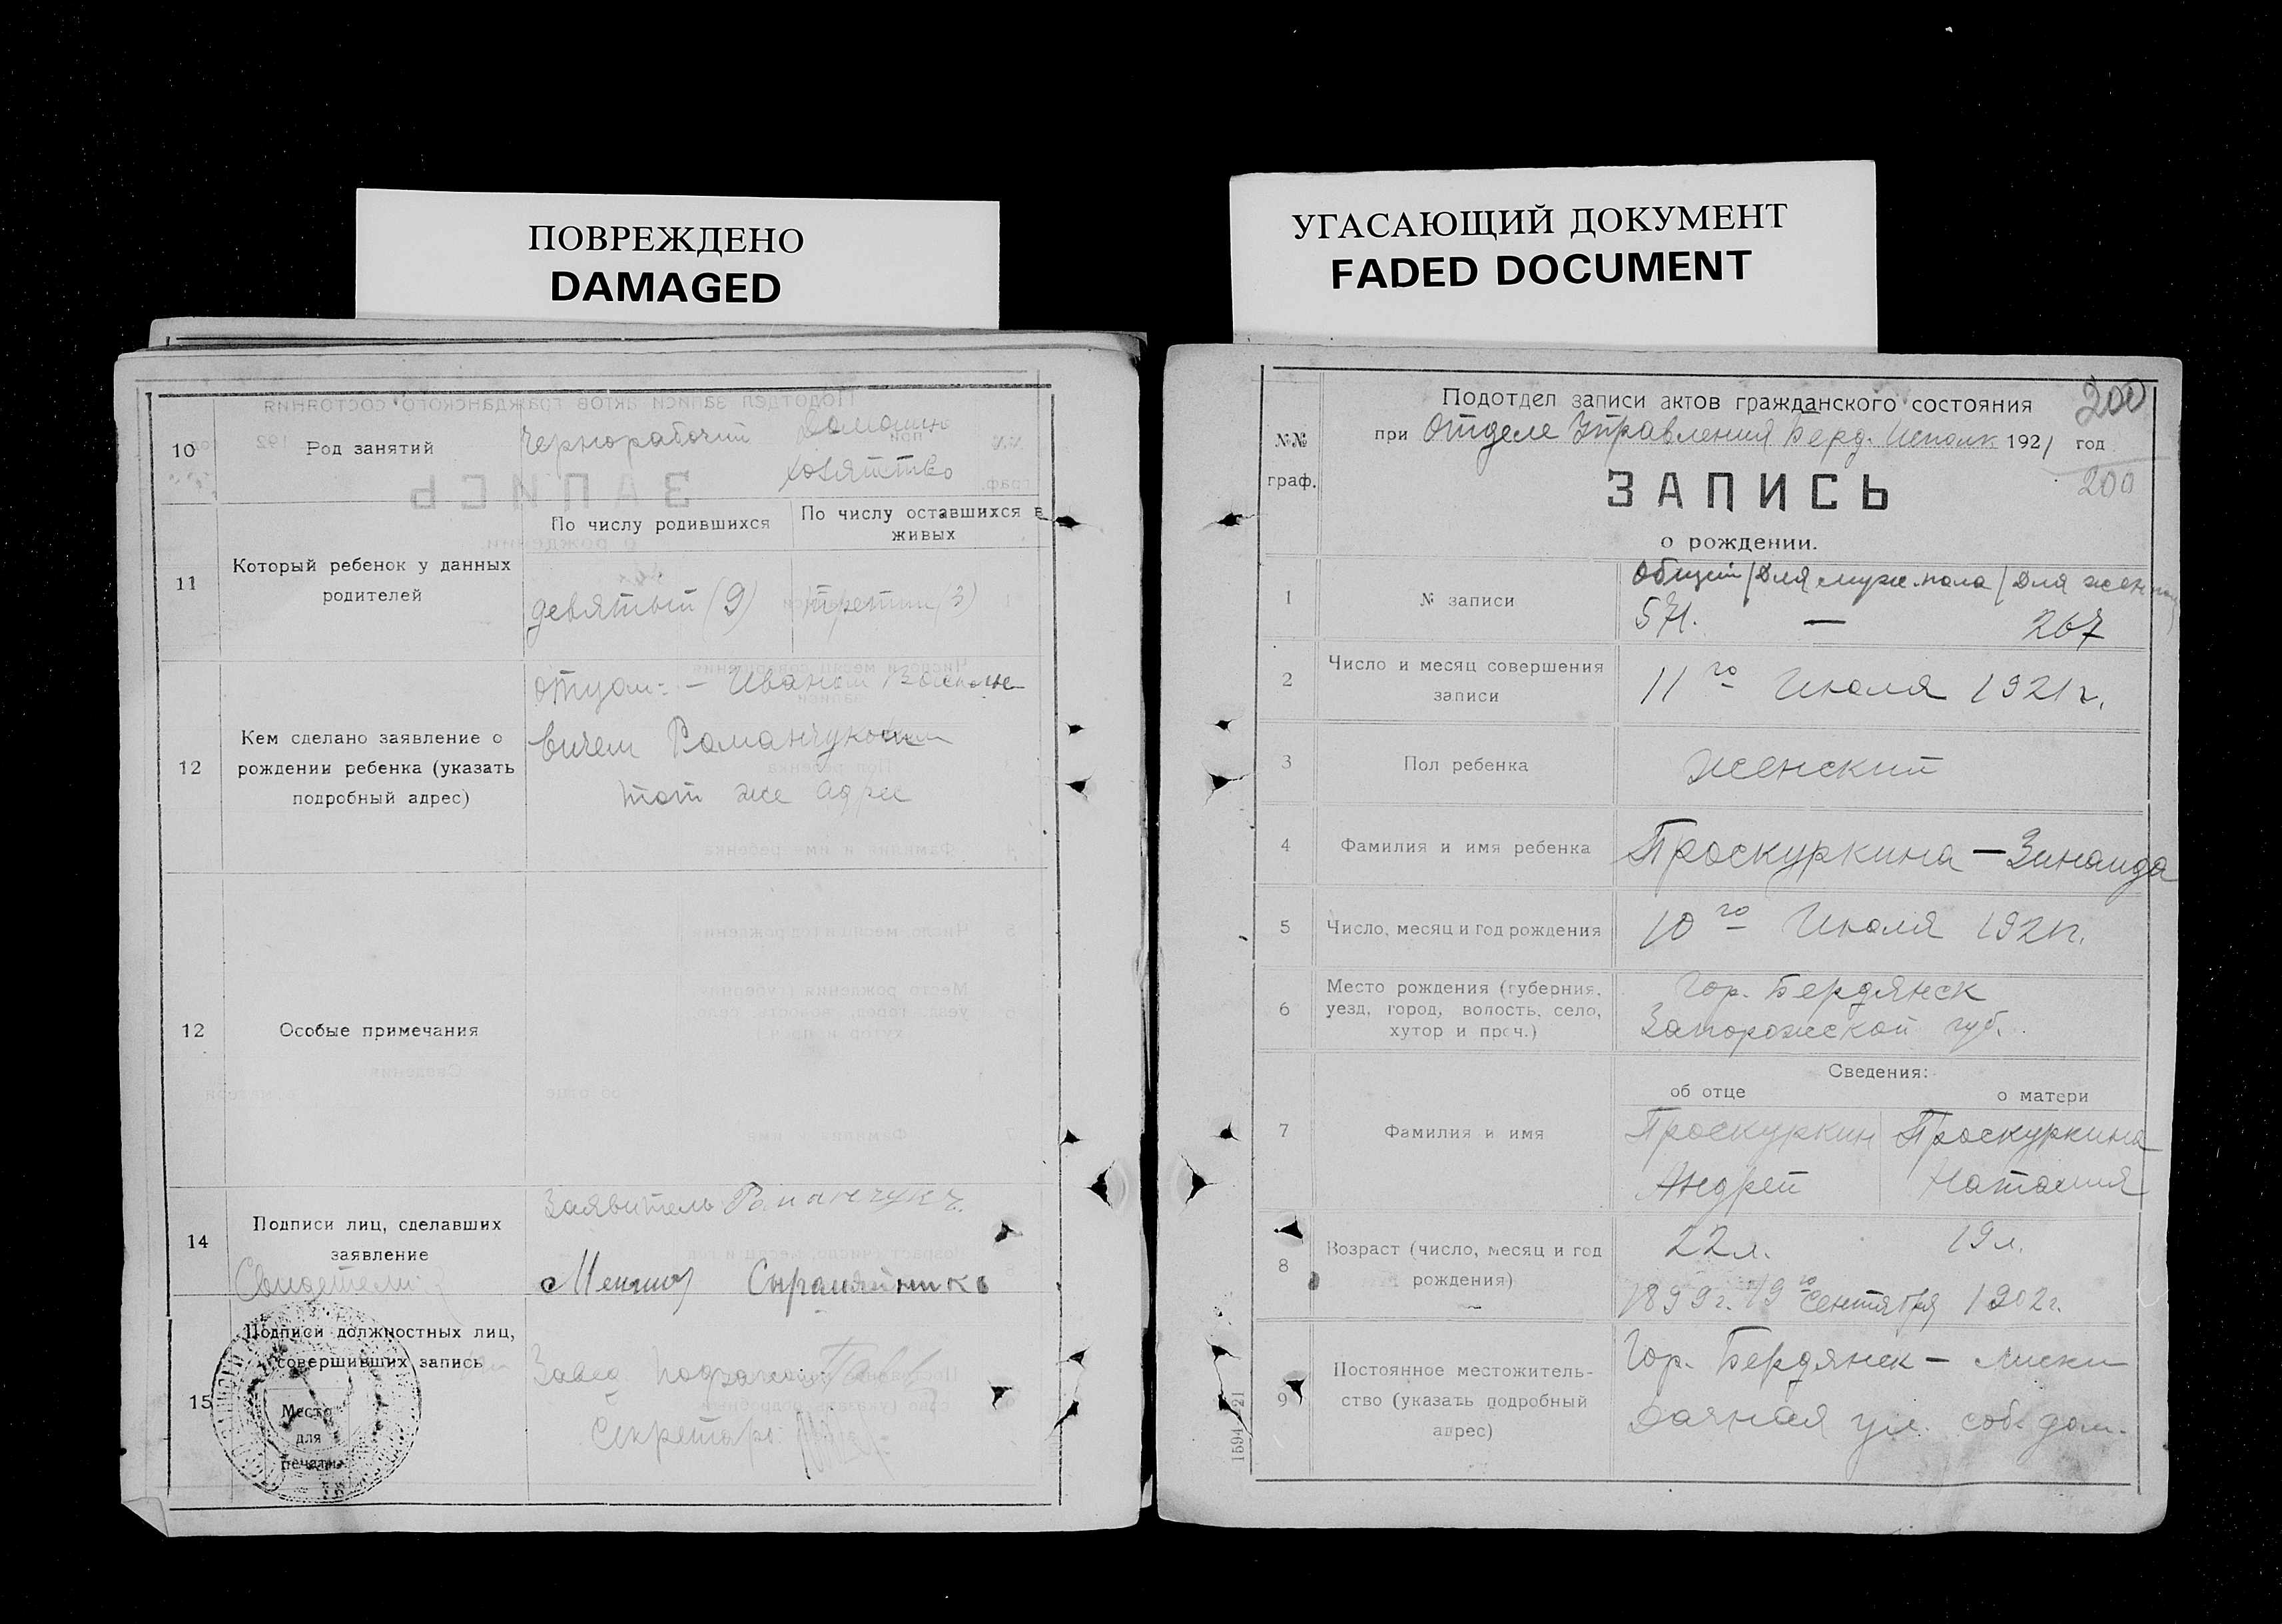 ПОВРЕЖДЕНО
DAMAGED
10
Род занятий
Чернорабочий
Домашн.
хозяйство
11
Который ребенок у данных
родителей
По числу родившихся
По числу оставшихся в
живых
девятый (9)
третий (3)
12
Кем сделано заявление о
рождении ребенка (указать
подробный адрес)
отцом: – Иваном Василье
вичем Романчуком
тот же адрес
12
Особые примечания
14
Подписи лиц, сделавших
заявление
Свидетели:
Заявитель Романчукъ
15
Подписи должностных лиц,
совершивших запись
Место
для
печати
Завед. подотд.
Секретарь:
УГАСАЮЩИЙ ДОКУМЕНТ
FADED DOCUMENT
200
Подотдел записи актов гражданского состояния
№№
граф.
при Отделе Управления Берд. Исполк. 1921 год
200
ЗАПИСЬ
о рождении.
1
№ записи
Общий / Для муж. пола / Для жен. пол
571. — 267
2
Число и месяц совершения
записи
11го Июля 1921 г.
3
Пол ребенка
женский
4
Фамилия и имя ребенка
Проскуркина — Зинаида
5
Число, месяц и год рождения
10го Июля 1921 г.
6
Место рождения (губерния,
уезд, город, волость, село,
хутор и проч.)
Гор. Бердянск
Запорожской губ.
Сведения:
об отце
о матери
7
Фамилия и имя
Проскуркин
Андрей
Проскуркина
Наталия
8
Возраст (число, месяц и год
рождения)
22 л.
19 л.
1899 г. 19го Сентября 1902 г.
9
Постоянное местожитель-
ство (указать подробный
адрес)
Гор. Бердянск – Лиски
ул. соб. дом.
1594—21